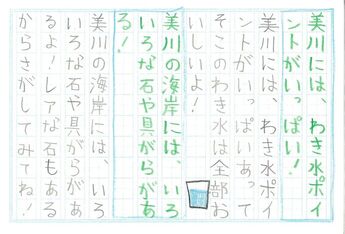 美川には、わき水ポイ
ントがいっぱい!
美川には、わき水ポイ
ントがいっぱいあって
そこのわき水は全部お
いしいよ!
美川の海岸には、いろ
いろな石や貝がらがあ
る!
美川の海岸には、いろ
いろな石や貝がらがあ
るよ!レアな石もある
からさがしてみてね!